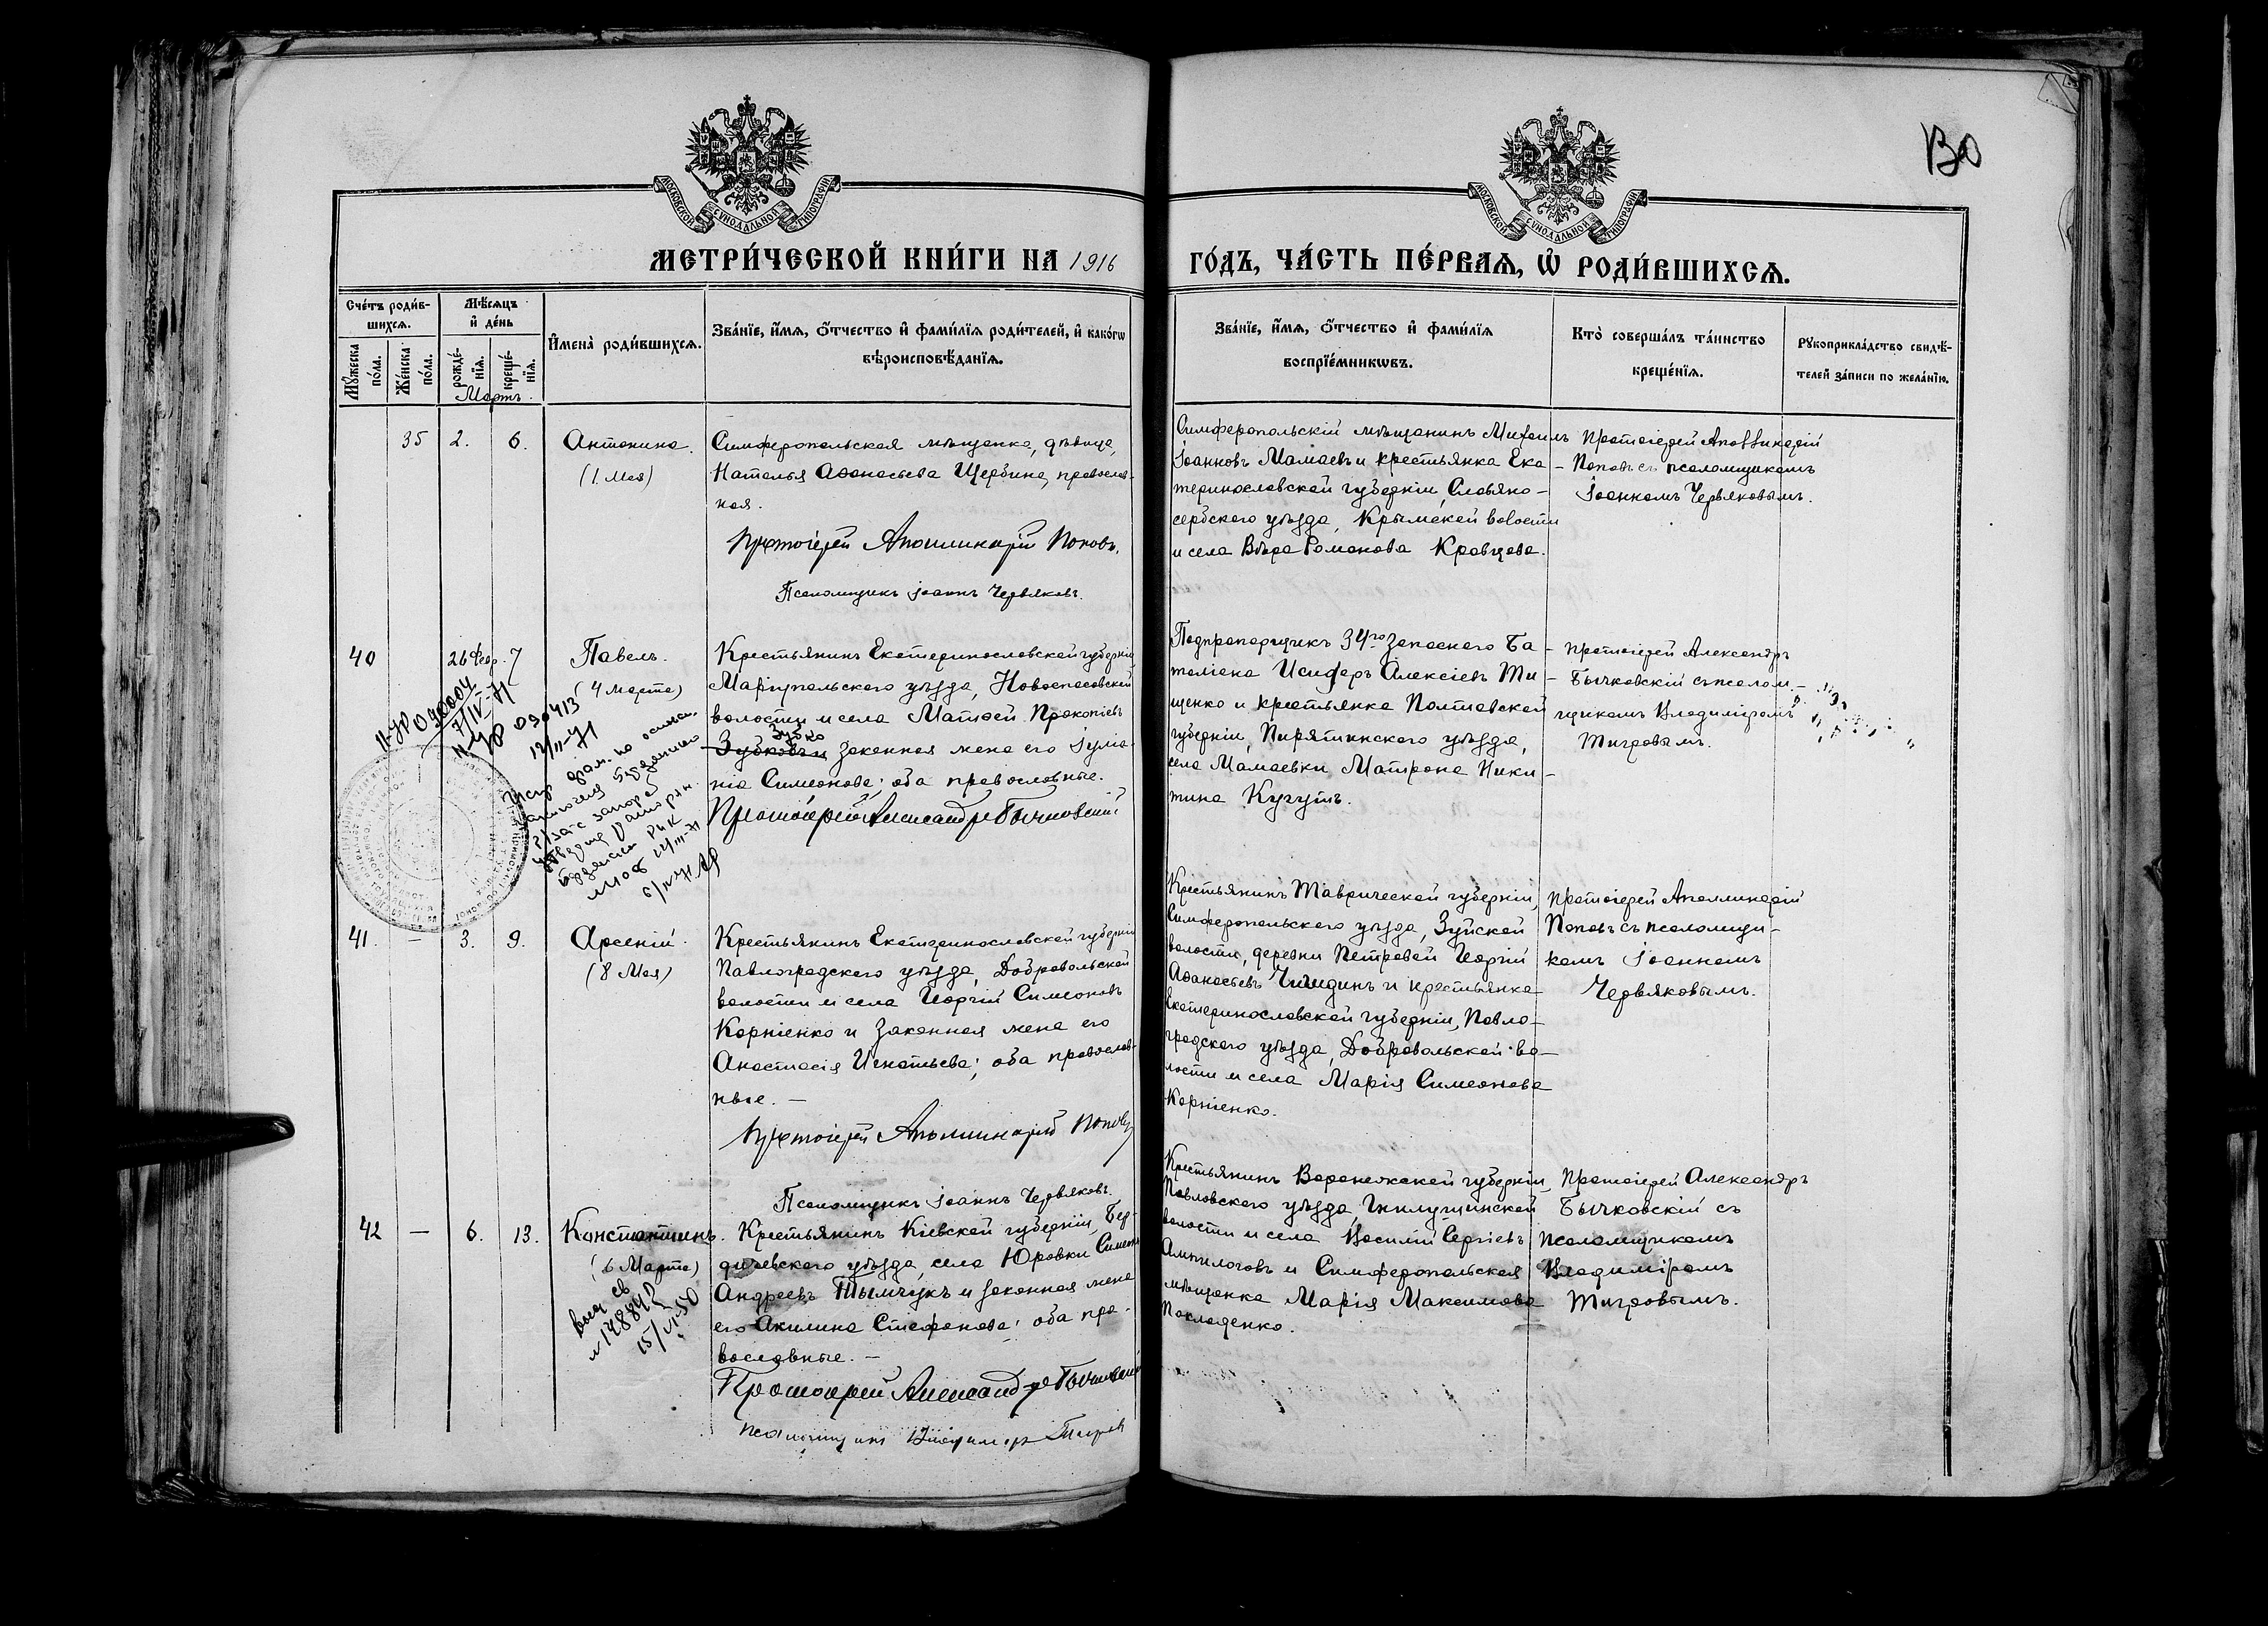 130
МОСКОВСКОЙ СѴНОДАЛЬНОЙ ТИПОГРАФІИ
МОСКОВСКОЙ СѴНОДАЛЬНОЙ ТИПОГРАФІИ
МЕТРИ́ЧЕСКОЙ КНИ́ГИ НА 1916
ГО́ДЪ, ЧА́СТЬ ПЕ́РВАЯ, Ѡ҆ РОДИ́ВШИХСЯ.
Сче́тъ роди́в-
шихся.
Мѣ́сяцъ
и҆ де́нь
Мꙋ́жеска
по́ла.
Же́нска
по́ла.
рожде́-
нїя.
креще́-
нїя.
И҆мена̀ роди́вшихся.
Зва́нїе, и҆́мя, ѻ҆́тчество и҆ фами́лїя роди́телей, и҆ како́гѡ
вѣроисповѣ́данїя.
Зва́нїе, и҆́мя, ѻ҆́тчество и҆ фами́лїя
воспрїе́мникѡвъ.
Кто̀ соверша́лъ та́инство
креще́нїя.
Рꙋкоприкла́дство свидѣ́-
телей за́писи по жела́нїю.
Мартъ
35 2. 6. Антонина.
(1 Мая)
Симферопольская мѣщанка, дѣвица,
Наталья Аѳанасьева Щербина, православ-
ная.
Протоіерей Аполлинарій Поповъ.
Псаломщикъ Іоаннъ Червяковъ.
Симферопольскій мѣщанинъ Михаилъ
Іоанновъ Мамаевъ и крестьянка Ека-
теринославской губерніи, Славяно-
сербскаго уѣзда, Крымской волости
и села Вѣра Романова Кравцова.
Протоіерей Аполлинарій
Поповъ съ псаломщикомъ
Іоанномъ Червяковымъ.
40 26 Февр. 7 Павелъ.
(4 Марта)
Крестьянинъ Екатеринославской губерніи
Маріупольскаго уѣзда, Новоспасовской
волости и села Матѳей Прокопіевъ
Зубко
Зубковъ и законная жена его Іуліа-
нія Симеонова; оба православные.
Протоіерей Александръ Бычковскій
Подпрапорщикъ 34го запаснаго Ба-
таліона Исидоръ Алексіевъ Ти-
щенко и крестьянка Полтавской
губерніи, Пирятинскаго уѣзда,
села Мамаевки Матрона Ники-
тина Кугутъ.
Протоіерей Александръ
Бычковскій съ псалом-
щикомъ Владиміромъ
Тигровымъ.
II-УР 090004
7/IV-71
II-УР 090413
12/II-71
41. — 3. 9. Арсеній.
(8 Мая)
Крестьянинъ Екатеринославской губерніи
Павлоградскаго уѣзда, Добровольской
волости и села Георгій Симеоновъ
Корніенко и законная жена его
Анастасія Игнатьева; оба православ-
ные. —
Протоіерей Аполлинарій Поповъ
Псаломщикъ Іоаннъ Червяковъ.
Крестьянинъ Таврической губерніи,
Симферопольскаго уѣзда, Зуйской
волости, деревни Петровой Георгій
Аѳанасьевъ Чигидинъ и крестьянка
Екатеринославской губерніи, Павло-
градскаго уѣзда, Добровольской во-
лости и села Марія Симеонова
Корніенко.
Протоіерей Аполлинарій
Поповъ съ псаломщи-
комъ Іоанномъ
Червяковымъ.
42 — 6. 13. Константинъ.
(6 Марта)
Крестьянинъ Кіевской губерніи, Бер-
дичевскаго уѣзда, села Юровки Симеонъ
Андреевъ Тымчукъ и законная жена
его Акилина Стефанова; оба пра-
вославные. —
Протоіерей Александръ Бычковскій
Псаломщикъ Владимиръ Тигровъ
Крестьянинъ Воронежской губерніи,
Павловскаго уѣзда,
волости и села Василій Сергіевъ
Ампилоговъ и Симферопольская
мѣщанка Марія Максимова
Покладенко.
Протоіерей Александръ
Бычковскій съ
псаломщикомъ
Владиміромъ
Тигровымъ.
15/VI-50